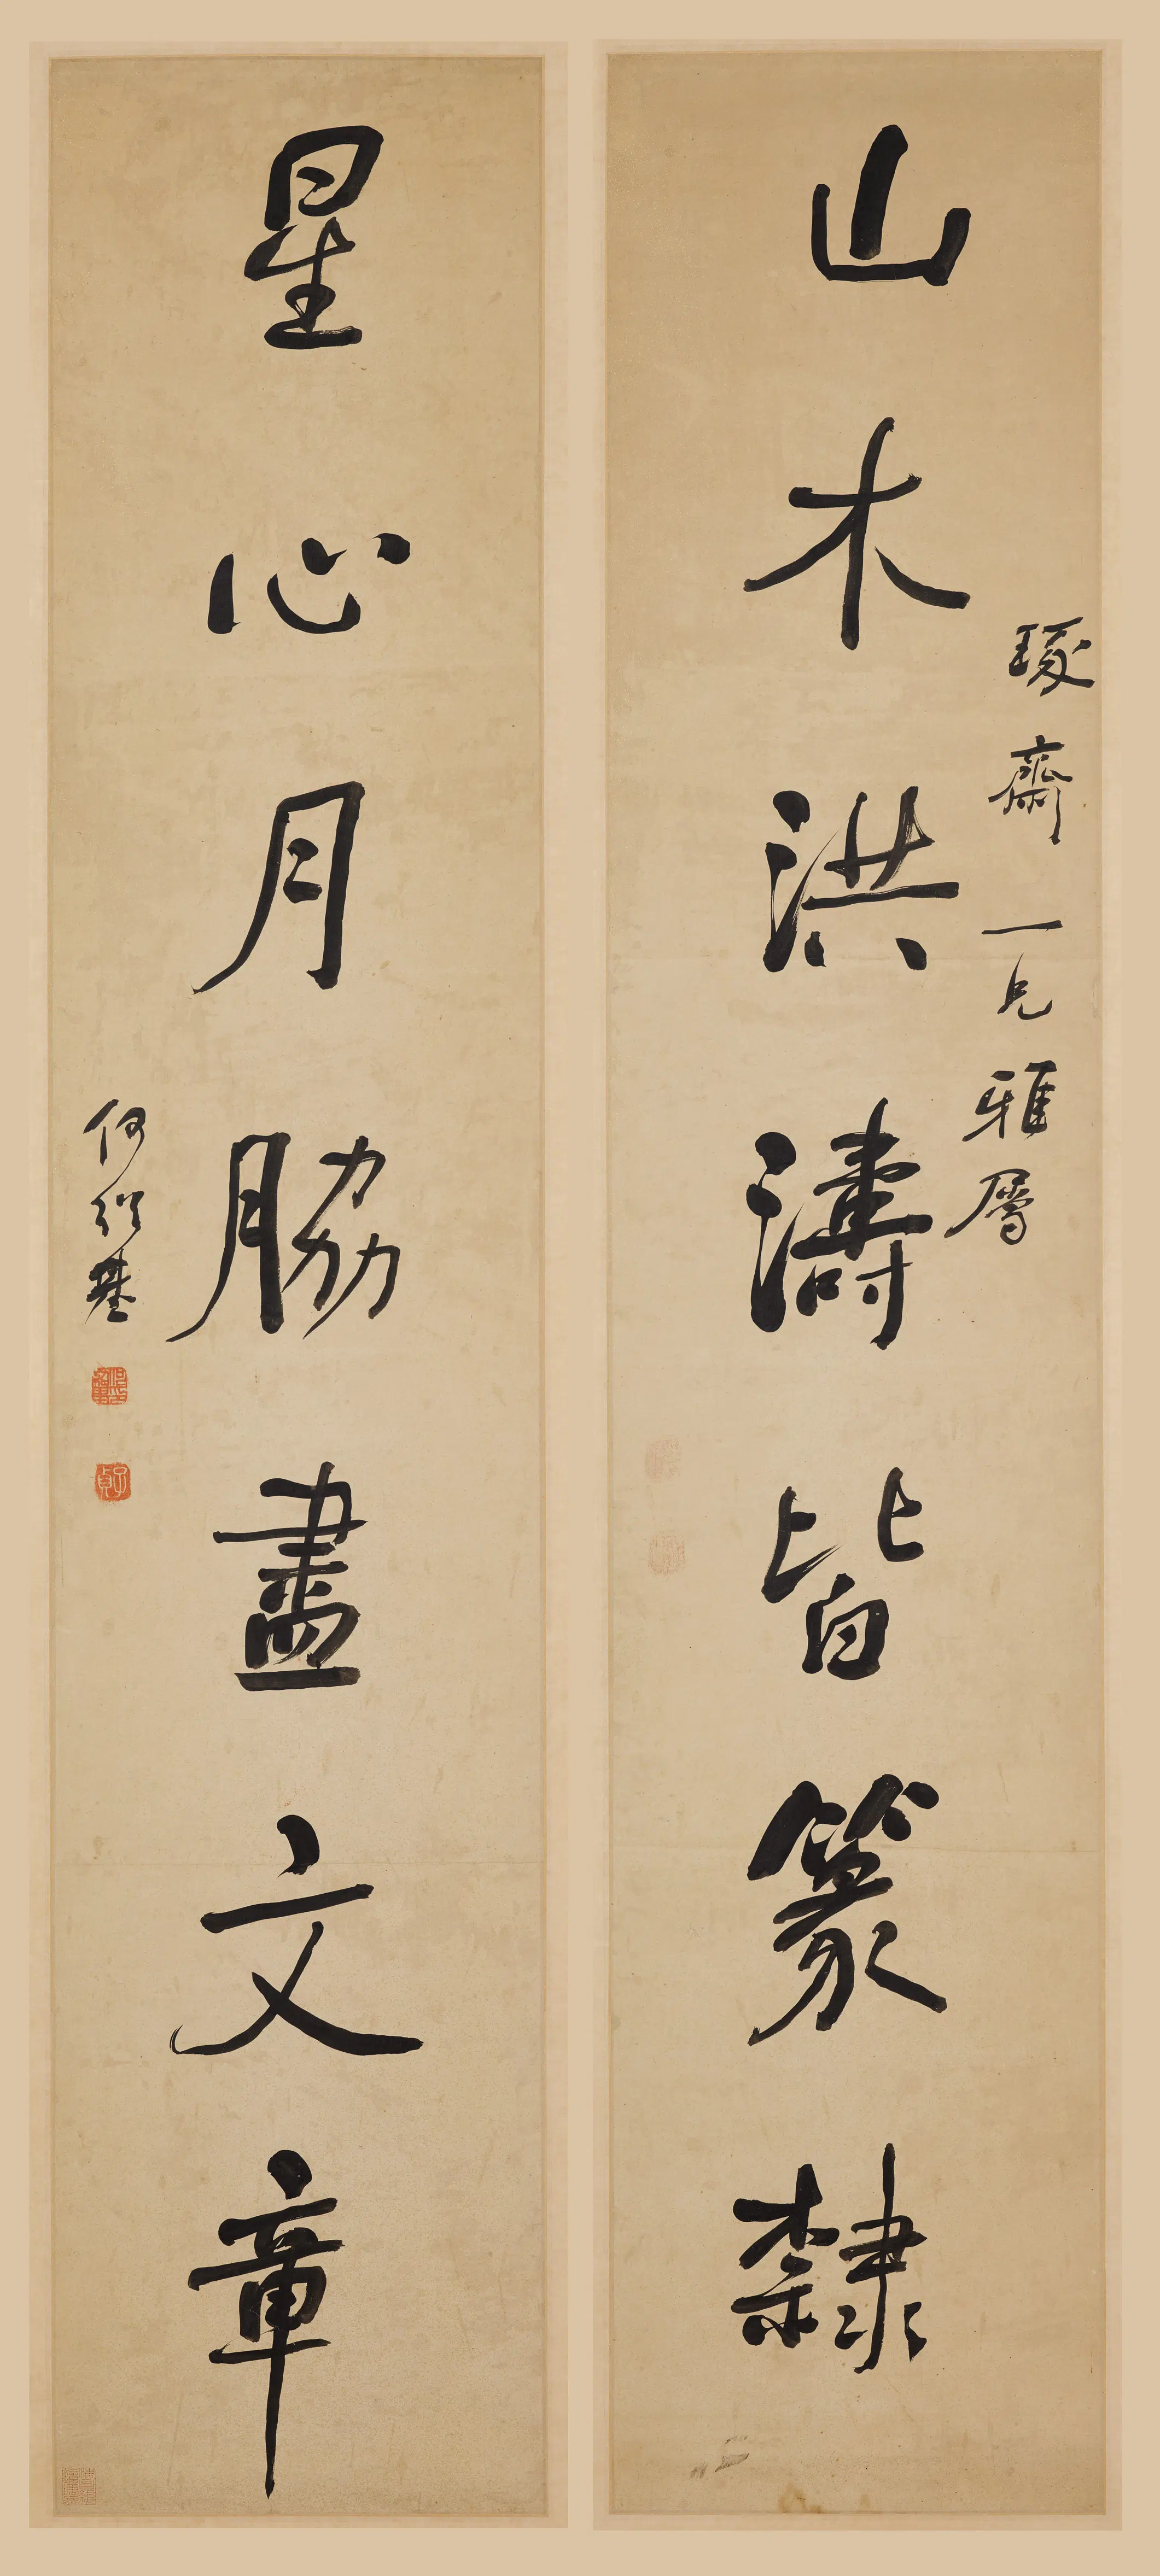 琢齋一兄雅屬
山木洪濤皆篆隸
星心月脇盡文章
何紹基
子貞